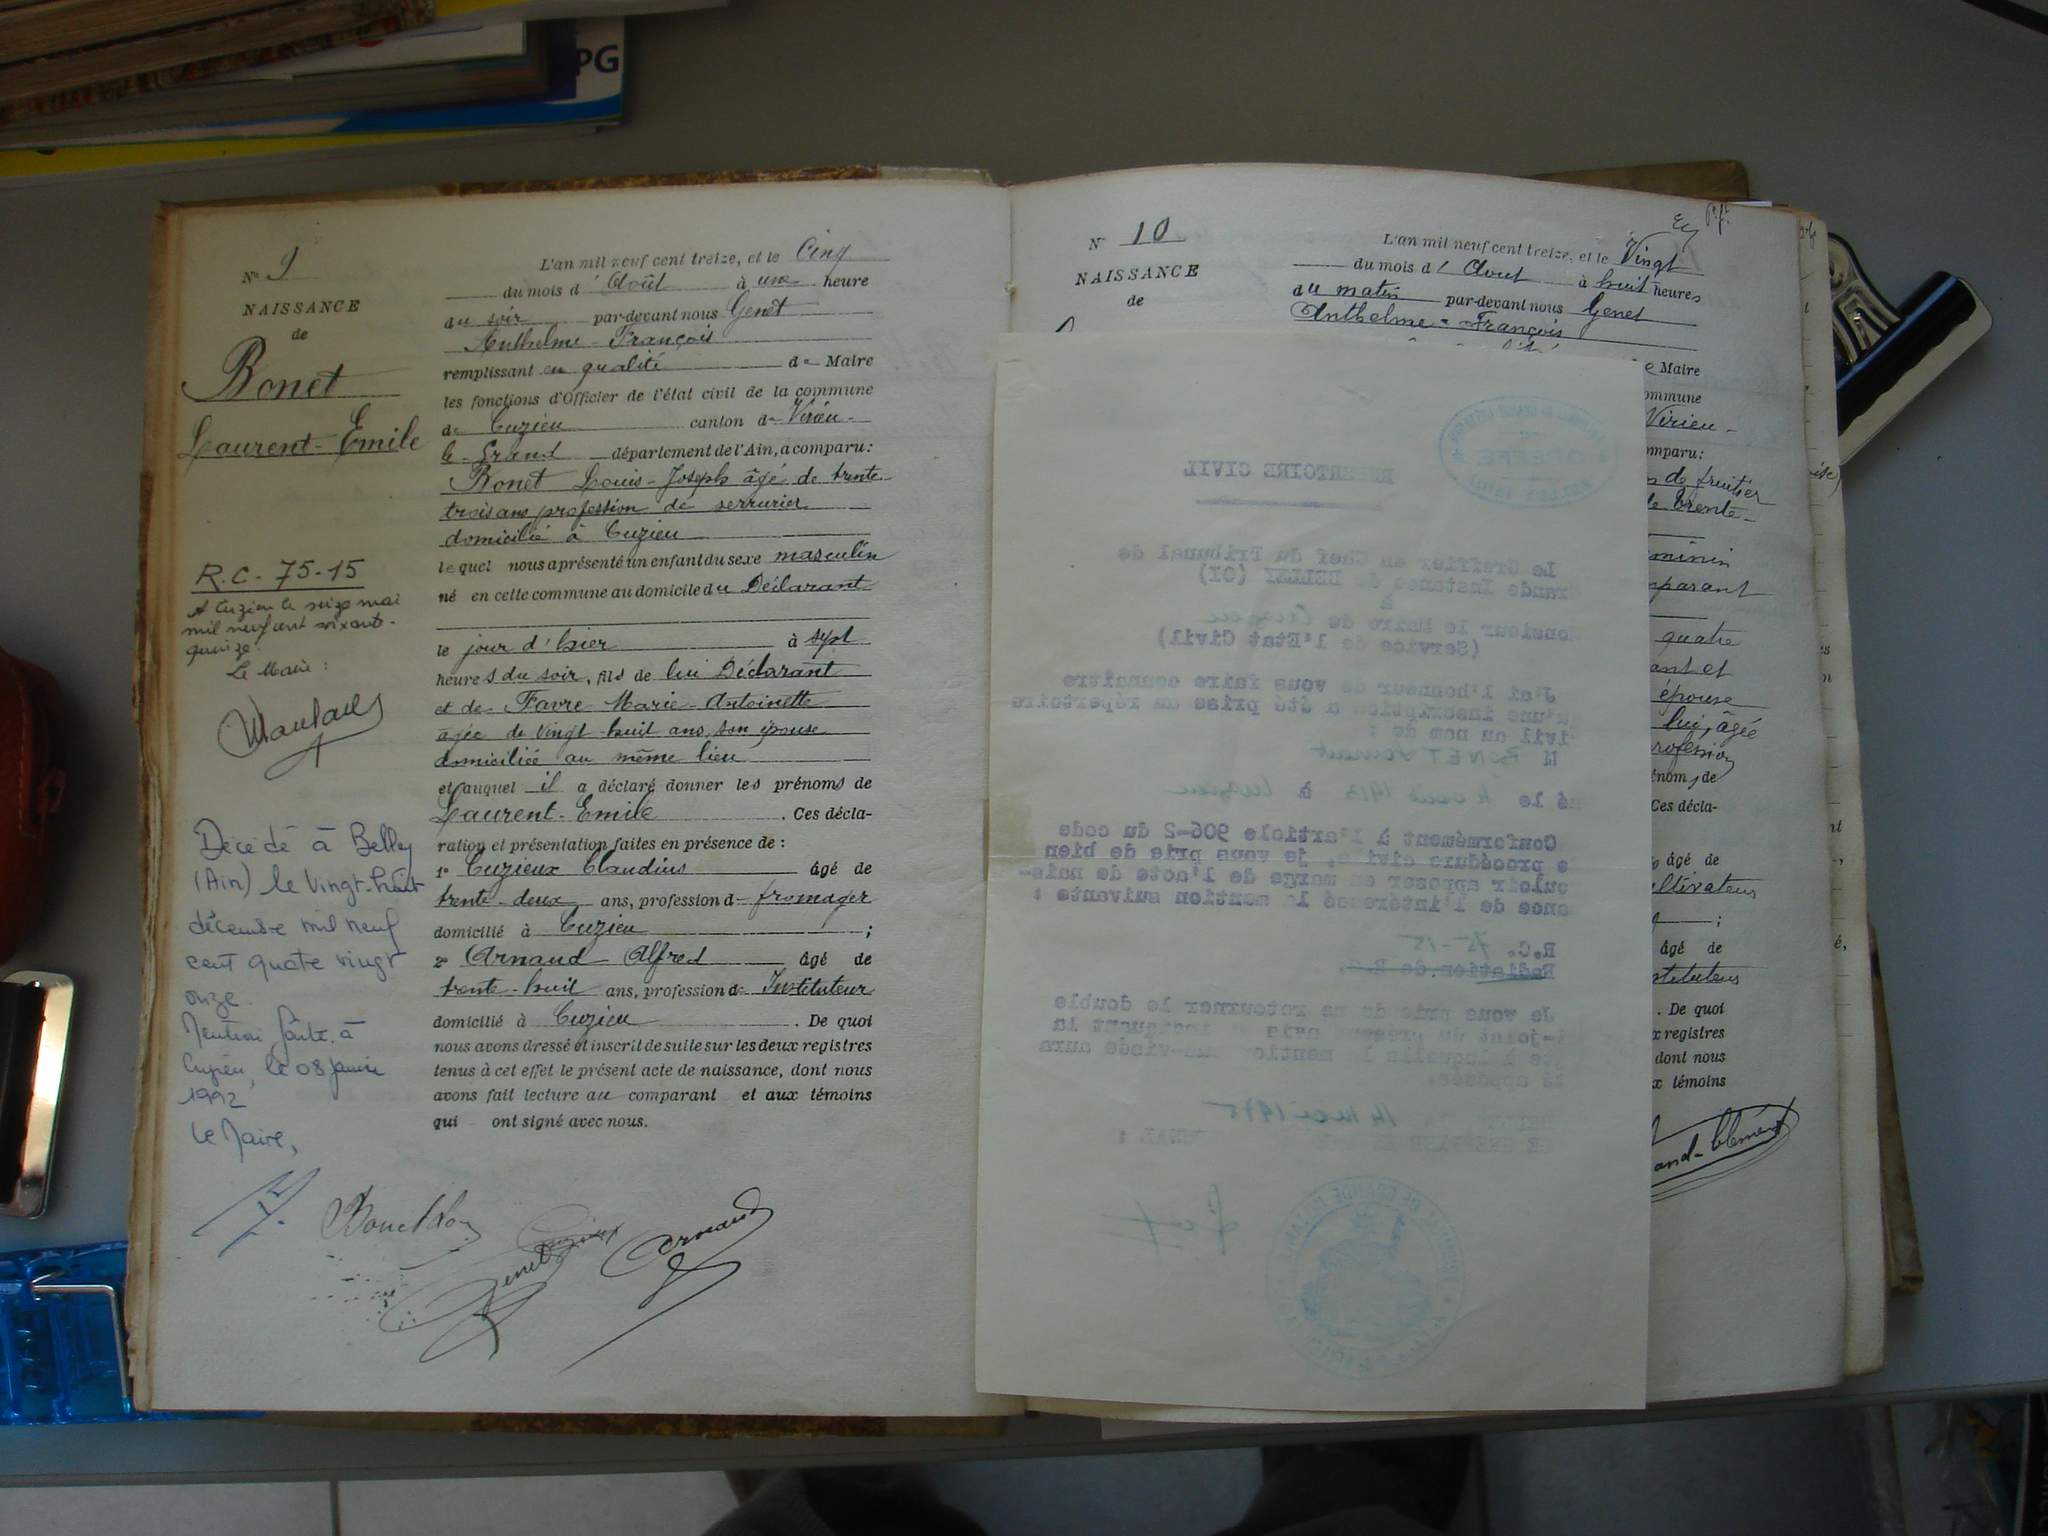 PG
N° 9
NAISSANCE
de
Bonet
Laurent-Emile
R.C. 75-15
A Cuzieu le seize mai
mil neuf cent soixante-
quinze.
Le Maire :
Décédé à Belley
(Ain) le vingt-huit
décembre mil neuf
cent quatre vingt
onze.
Mention faite à
Cuzieu, le 08 janvier
1992
Le Maire,
L'an mil neuf cent treize, et le Cinq
du mois d'Août à une heure
du soir par-devant nous Genet
Anthelme-François
remplissant en qualité de Maire
les fonctions d'Officier de l'état civil de la commune
de Cuzieu canton de Virieu-
le-Grand département de l'Ain, a comparu :
Bonet Louis-Joseph âgé de trente-
trois ans profession de serrurier
domicilié à Cuzieu
lequel nous a présenté un enfant du sexe masculin
né en cette commune au domicile du Déclarant
le jour d'hier à sept
heures du soir, fils de lui Déclarant
et de Favre Marie-Antoinette
agée de vingt-huit ans, son épouse
domiciliée au même lieu
et auquel il a déclaré donner les prénoms de
Laurent-Emile . Ces décla-
ration et présentation faites en présence de :
1° Cuzieux Claudius âgé de
trente-deux ans, profession de fromager
domicilié à Cuzieu ;
2° Arnaud Alfred âgé de
trente-huit ans, profession de Instituteur
domicilié à Cuzieu . De quoi
nous avons dressé et inscrit de suite sur les deux registres
tenus à cet effet le présent acte de naissance, dont nous
avons fait lecture au comparant et aux témoins
qui ont signé avec nous.
Genet Cuzieux Arnaud
N° 10
NAISSANCE
de
L'an mil neuf cent treize, et le Vingt
du mois d'Aout à huit heures
du matin par-devant nous Genet
Anthelme-François
Maire
ommune
Virieu-
omparu :
de fruitier
de trente-
minin
parant
quatre
ant et
épouse
lui, âgée
rofession
énoms de
Ces décla-
âgé de
ultivateur
;
âgé de
stituteur
. De quoi
x registres
dont nous
x témoins
and-Clément
REPERTOIRE CIVIL
Le Greffier en Chef du Tribunal de
rande Instance de BELLEY (01)
à
onsieur le Maire de Cuzieu
(Service de l'Etat Civil)
J'ai l'honneur de vous faire connaître
qu'une inscription a été prise au répertoire
ivil au nom de :
M BONET Laurent
né le 4 aout 1913 à Cuzieu
Conformément à l'article 906-2 du code
e procédure civile, je vous prie de bien
ouloir apposer en marge de l'acte de nais-
ance de l'intéressé la mention suivante :
R.C. 75-15
Radiation de R.C.
Je vous prie de me retourner le double
i-joint du présent avis indiquant la
te à laquelle la mention sus-visée aura
té apposée.
14 Mai 1975